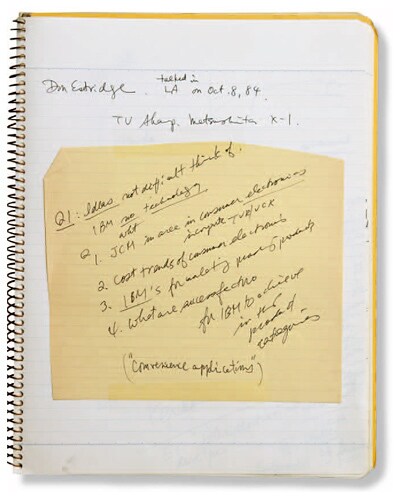 Don Estridge. talked in
LA on Oct. 8, 84.
TV Sharp. Matsushita X-1.
Q1: Ideas not difficult think of.
IBM no technology
what
Q 1. JCM in area in consumer electronics
incorporate TVR/VCR
2. Cost trends of consumer electronics
3. IBM's for making products
4. What are success factors
for IBM to achieve
in the
products of
categories
("Convenience applications")